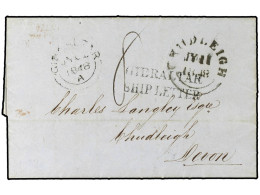 CHUDLEIGH
JY 11
1848
1848
A
8
GIBRALTAR
SHIP LETTER
Charles Langley Esqr
Chudleigh
Devon